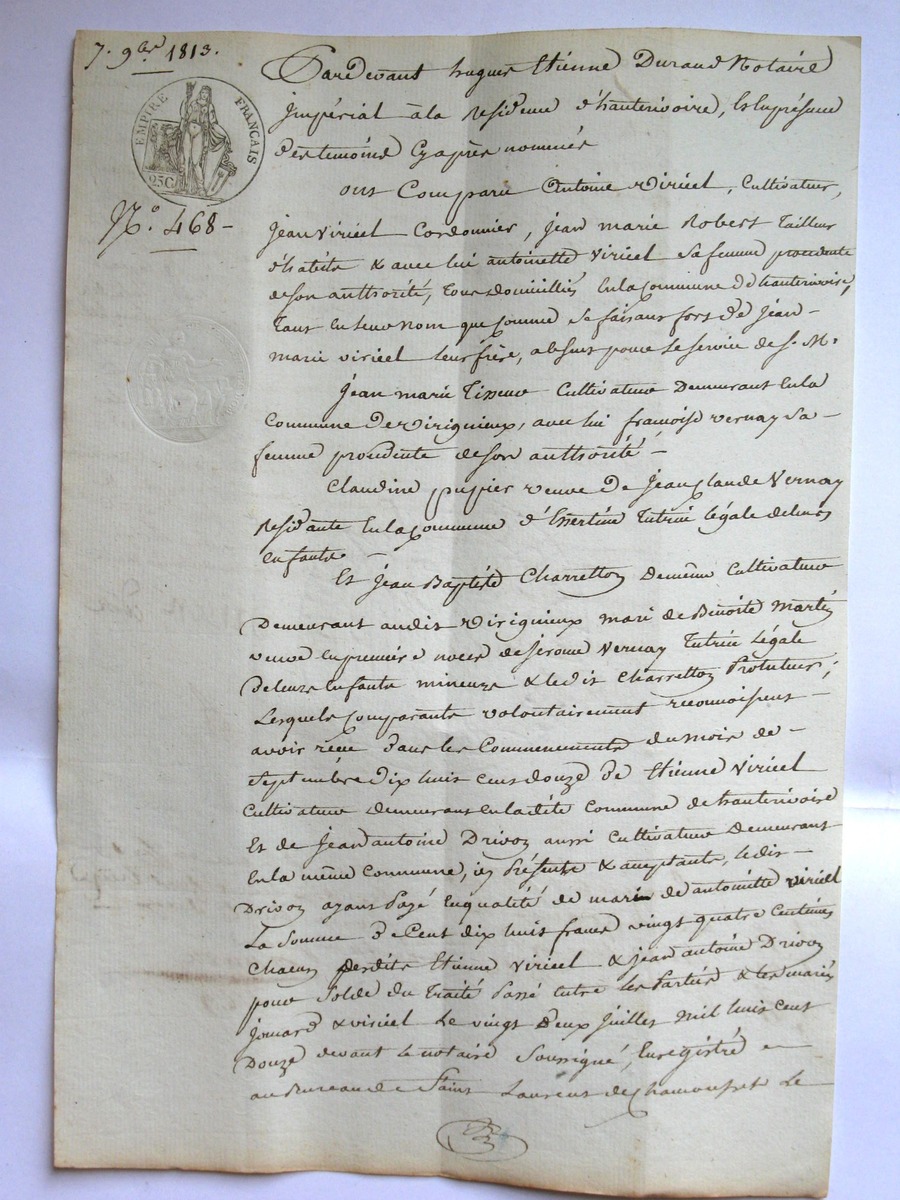 7. 9bre 1813.
EMPIRE FRANÇAIS
25C
N.o 468 -
Pardevant hugues Etienne Durand Notaire
Impérial à la residence d'hauterivoire, Et En présence
des temoins Cy après nommés
ont Comparu Antoine Viricel, Cultivateur,
Jean Viricel Cordonnier, jean marie Robert Tailleur
d'habits & avec lui antoinette Viricel Sa femme procedente
de son authorité, tous domiciliés En la Commune d'hauterivoire,
tant En leur nom que comme se faisant forts de jean-
marie viricel leur frère, absent pour le service de S. M.
Jean marie Tisseur Cultivateur Demeurant En la
Commune de virignieux, avec lui francoise vernay Sa -
femme procedente de son authorité -
Claudine pupier veuve de jean Claude Vernay
Residante En la Commune d'Essertine Tutrice légale de leurs
enfants -
Et jean Baptiste Charretton Demême Cultivateur
Demeurant audit Virignieux mari de Benoite Martin
veuve En premières noces de jérome Vernay Tutrice légale
de leurs Enfants mineurs & ledit Charretton Protuteur,
Lesquels comparants volontairement reconnoissent -
avoir recu dans les Commencements du mois de -
Septembre dix huit cent douze de Etienne Viricel
Cultivateur demeurant en la dite Commune de hauterivoire
Et de Jean antoine Drivon aussi Cultivateur Demeurant
En la même Commune, ici Présents & acceptants, ledit -
Drivon ayant Payé En qualité de mari de antoinette viricel
La Somme de Cent dix huit francs vingt quatre Centimes
Chacun desdits Etienne Viricel & jean antoine Drivon
pour Solde du Traité Passé Entre les Parties & les mariés
Jomard & viricel le vingt deux juillet mil huit cent
Douze devant le notaire Soussigné, Enregistré -
au Bureau de Saint Laurent de Chamousset Le